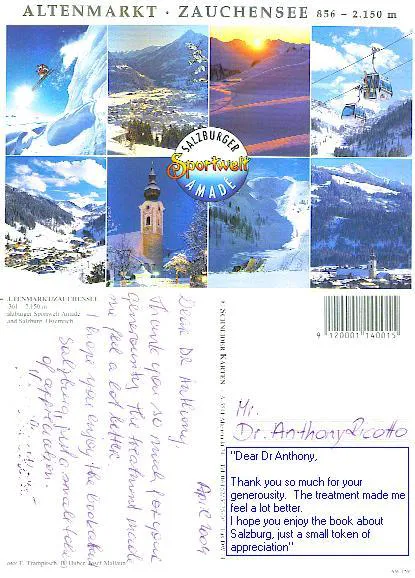 ALTENMARKT · ZAUCHENSEE 856 – 2.150 m
SALZBURGER
Sportwelt
AMADE
ALTENMARKT/ZAUCHENSEE
Salzburger Sportwelt Amade
and Salzburg, Österreich
SCHNEIDER KARTEN
9 120001 140015
April 2004
Dear Dr Anthony,
thank you so much for your
generousity. The treatment made
me feel a lot better.
I hope you enjoy the book about
Salzburg, just a small token
of appreciation.
Mr.
Dr. Anthony Ricotto
"Dear Dr Anthony,
Thank you so much for your
generousity. The treatment made me
feel a lot better.
I hope you enjoy the book about
Salzburg, just a small token of
appreciation"
Huber, Josef Mallaun